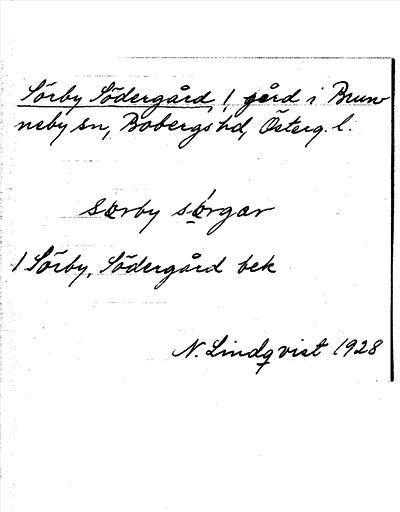 Sörby Södergård, 1 gård i Brun-
neby sn, Bobergs hd, Österg. l.
sørby sørgar
1 Sörby, Södergård bek
N. Lindqvist 1928